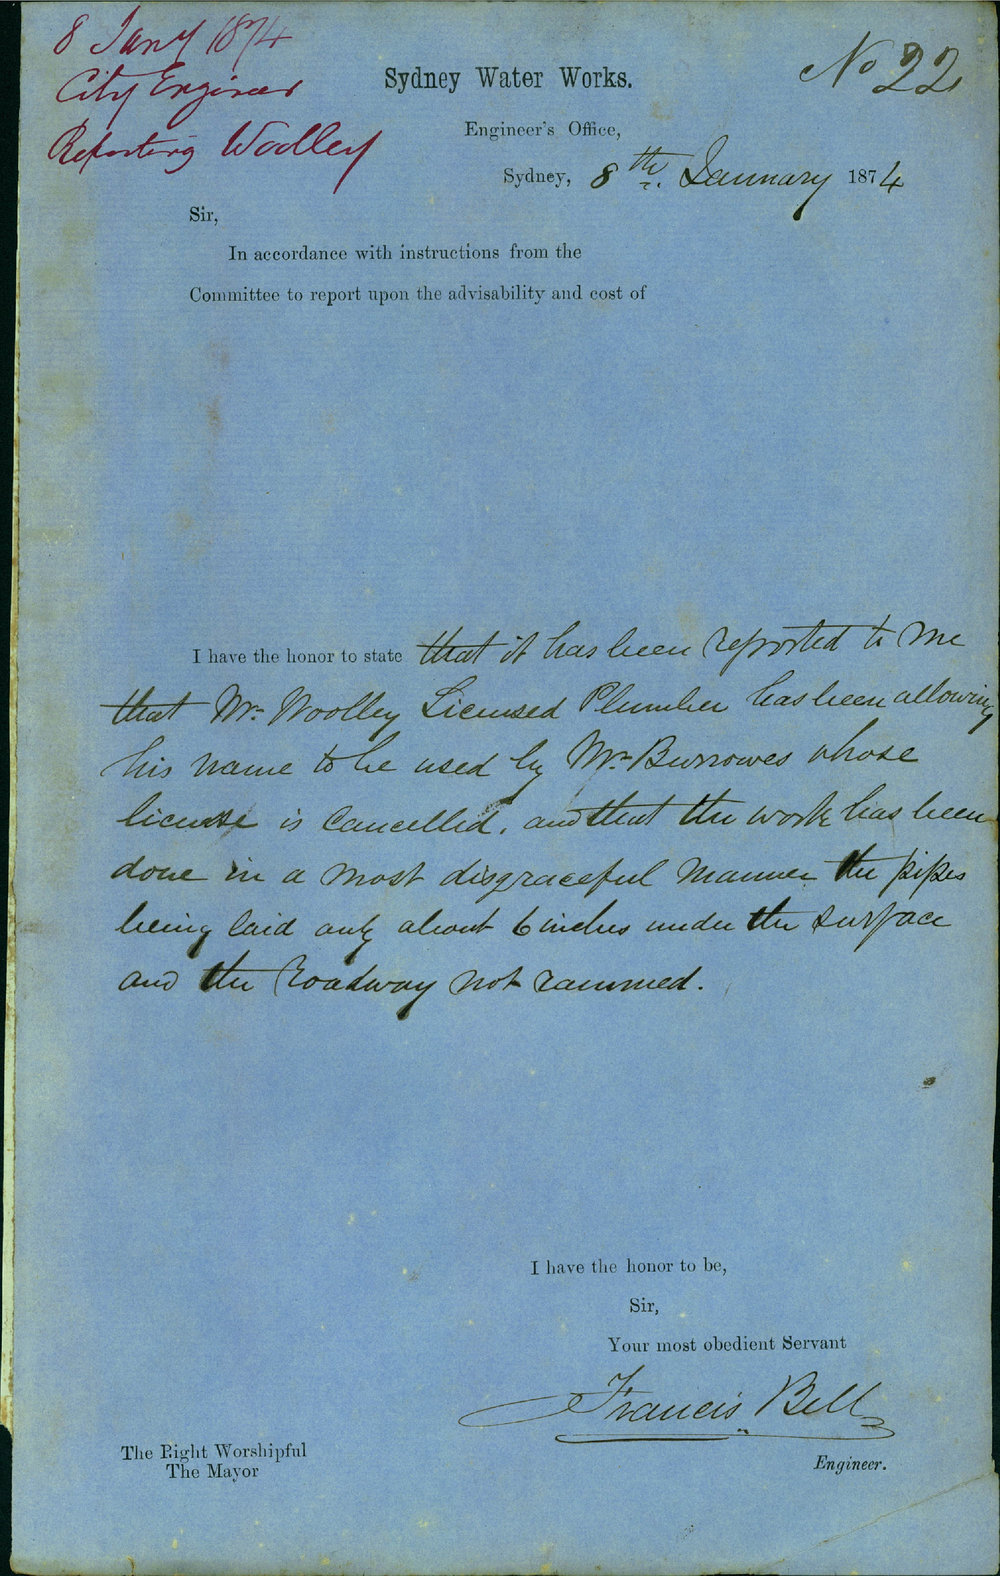 8 Jany 1874
City Engineer
Reporting Woolley
No 22
Sydney Water Works.
Engineer's Office,
Sydney, 8th. January 1874
Sir,
In accordance with instructions from the
Committee to report upon the advisability and cost of
I have the honor to state that it has been reported to me
that Mr. Woolley Licensed Plumber has been allowing
his name to be used by Mr. Burrowes whose
license is cancelled, and that the work has been
done in a most disgraceful manner the pipes
being laid only about 6 inches under the surface
and the roadway not rammed.
I have the honor to be,
Sir,
Your most obedient Servant
Francis Bell
Engineer.
The Right Worshipful
The Mayor